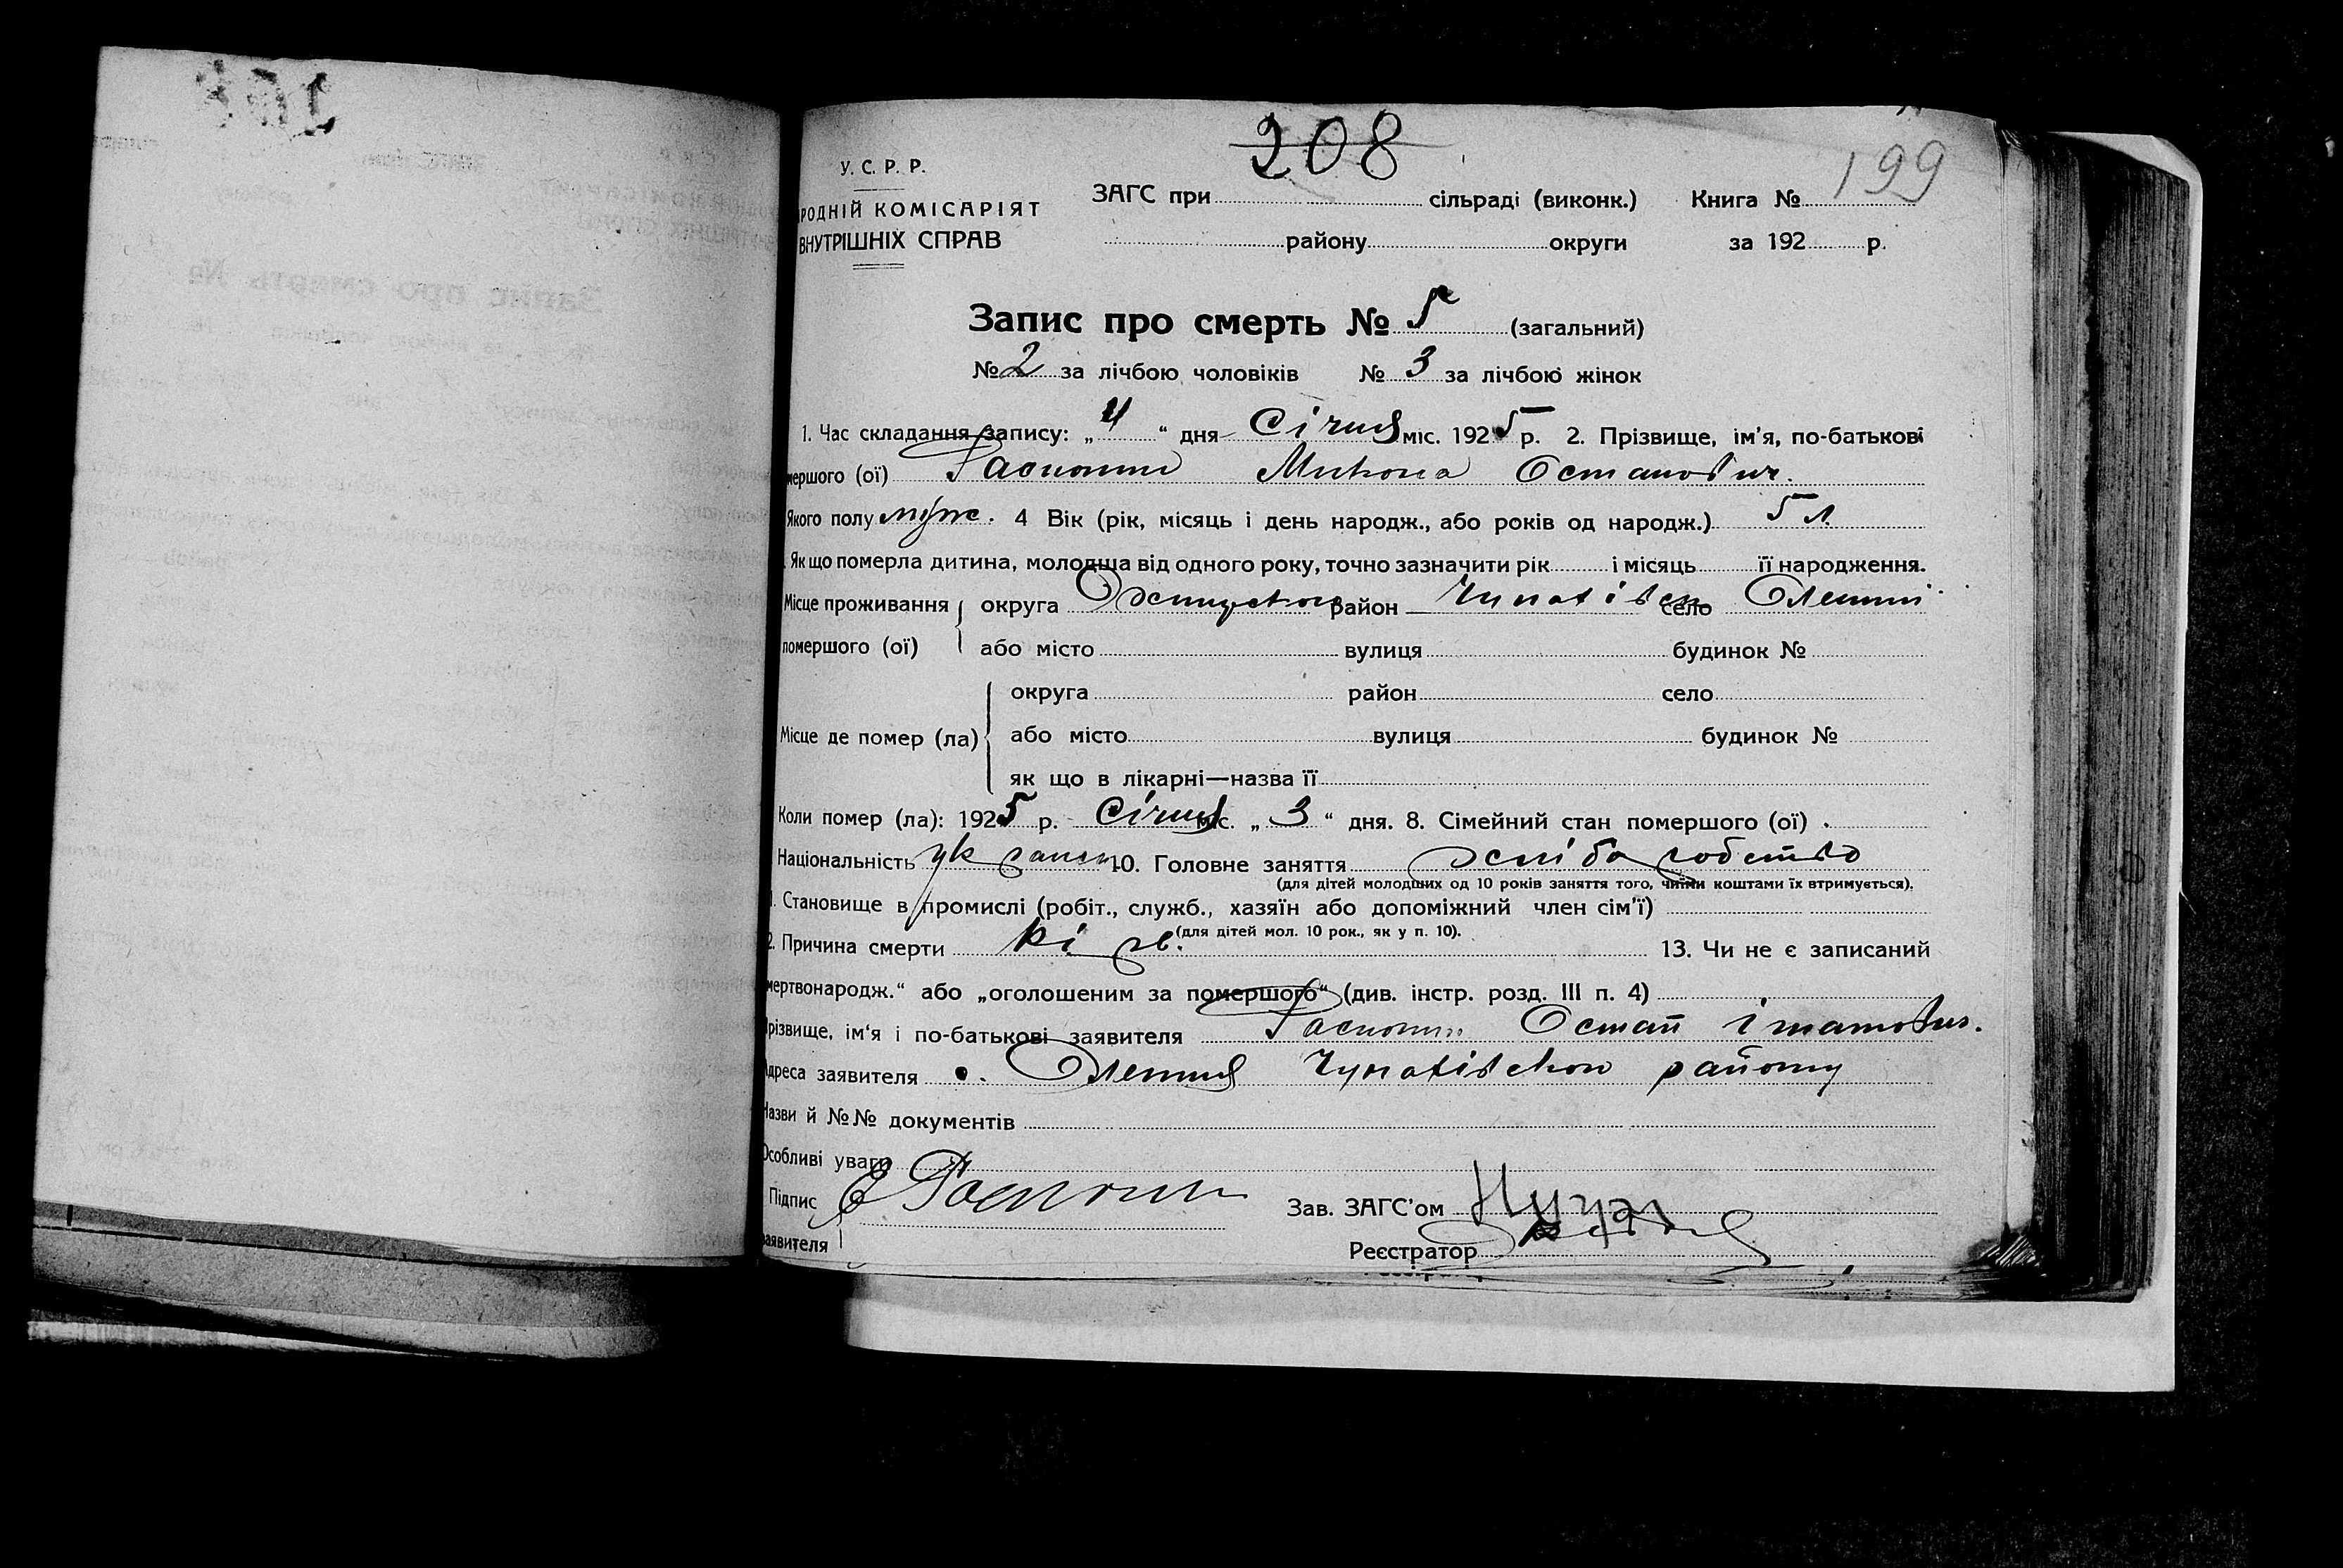 208
199
У. С. Р. Р.
РОДНІЙ КОМІСАРІЯТ
ВНУТРІШНІХ СПРАВ
ЗАГС при сільраді (виконк.) Книга №
району округи за 192 р.
Запис про смерть № 5 (загальний)
№ 2 за лічбою чоловіків № 3 за лічбою жінок
1. Час складання запису: „4“ дня Січня міс. 1925 р. 2. Прізвище, ім'я, по-батькові
мершого (ої) Микола Остапович.
Якого полу муж. 4 Вік (рік, місяць і день народж., або років од народж.) 5 л.
Як що померла дитина, молодша від одного року, точно зазначити рік і місяць її народження.
Місце проживання округа район село
помершого (ої) або місто вулиця будинок №
округа район село
Місце де помер (ла) або місто вулиця будинок №
як що в лікарні—назва її
Коли помер (ла): 1925 р. Січня міс. „3“ дня. 8. Сімейний стан помершого (ої)
Національність 10. Головне заняття хліборобство
(для дітей молодших од 10 років заняття того, чиїми коштами їх втримується).
1. Становище в промислі (робіт., служб., хазяїн або допоміжний член сім'ї)
(для дітей мол. 10 рок., як у п. 10).
2. Причина смерти 13. Чи не є записаний
мертвонародж.“ або „оголошеним за помершого“ (див. інстр. розд. III п. 4)
різвище, ім'я і по-батькові заявителя Остап
Адреса заявителя району
Назви й №№ документів
Особливі уваги
Підпис
заявителя
Зав. ЗАГС'ом
Реєстратор